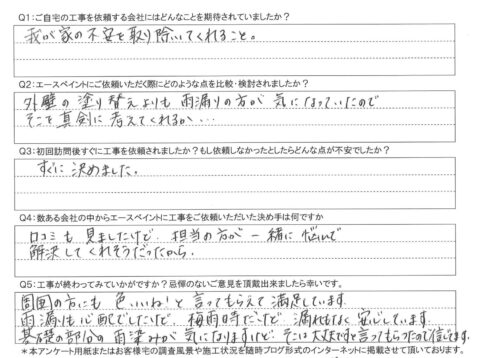 Q1:ご自宅の工事を依頼する会社にはどんなことを期待されていましたか？
我が家の不安を取り除いてくれること。
Q2:エースペイントにご依頼いただく際にどのような点を比較・検討されましたか？
外壁の塗り替えよりも雨漏りの方が気になっていたので
そこを真剣に考えてくれるか…
Q3:初回訪問後すぐに工事を依頼されましたか？もし依頼しなかったとしたらどんな点が不安でしたか？
すぐに決めました。
Q4:数ある会社の中からエースペイントに工事をご依頼いただいた決め手は何ですか
口コミも見ましたけど、担当の方が一緒に悩んで
解決してくれそうだったから。
Q5:工事が終わってみていかがですか？忌憚のないご意見を頂戴出来ましたら幸いです。
周囲の方にも色いいね！と言ってもらえて満足しています
雨漏りも心配でしたけど、梅雨時だけど漏れもなく安心しています
基礎の部分の雨染みが気になりますけど、そこは大丈夫と言ってもらったので信じてます。
＊本アンケート用紙またはお客様宅の調査風景や施工状況を随時ブログ形式のインターネットに掲載させて頂いております。